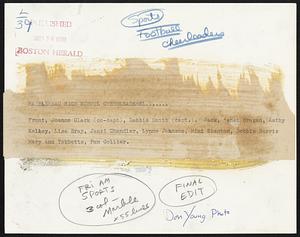 L/39
PUBLISHED
BOSTON HERALD
Sports
Football
Cheerleaders
MARBLEHEAD HIGH SCHOOL CHEERLEADERS......
Front, Joanne Clark (co-capt), Debbie Smith (capt.), Back, Janet Grogan, Kathy
Kelley, Lisa Bray, Janni Chandler, Lynne Johnson, Mimi Stanton, Debbie Harris
Mary Ann Tebbetts, Pam Collier.
FRI AM
SPORTS
3 col
Marble
x 55 lines
FINAL
EDIT
Don Young Photo